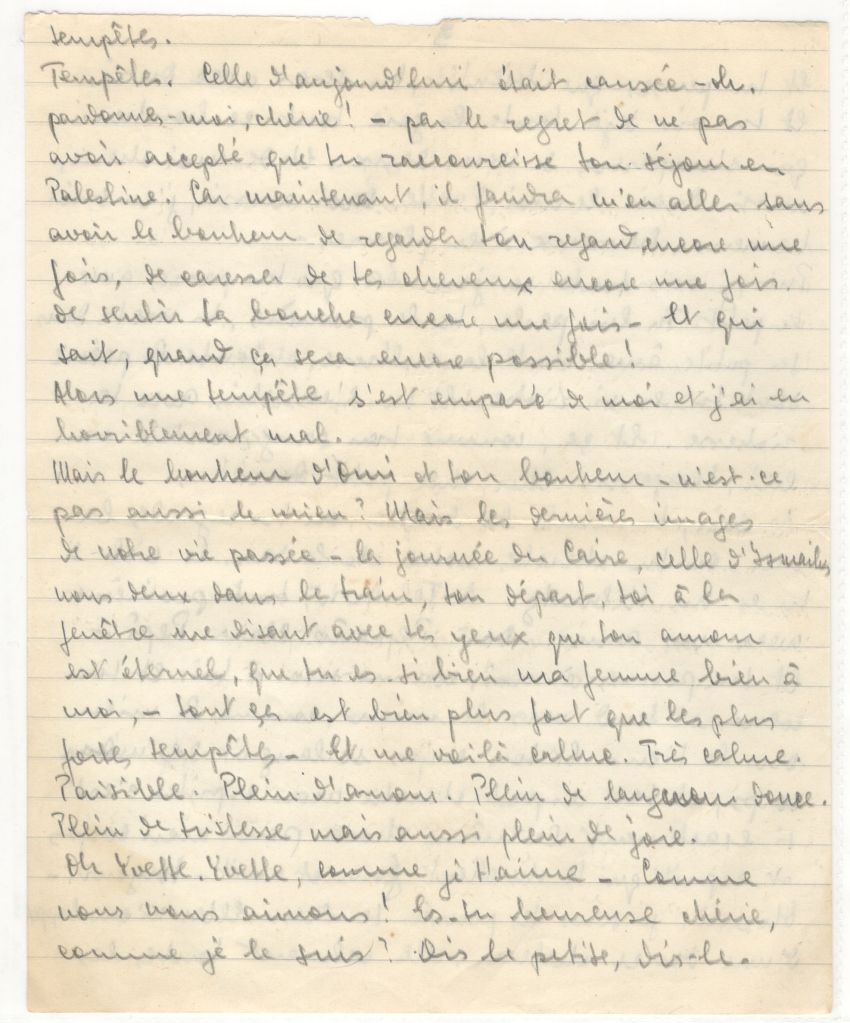 tempêtes.
Tempêtes. Celle d'aujourd'hui était causée - oh,
pardonnes-moi, chérie! - par le regret de ne pas
avoir accepté que tu raccourcisse ton séjour en
Palestine. Car maintenant, il faudra m'en aller sans
avoir le bonheur de regarder ton regard encore une
fois, de caresser de tes cheveux encore une fois.
de sentir ta bouche encore une fois - Et qui
sait, quand ça sera encore possible!
Alors une tempête s'est emparé de moi et j'ai eu
horriblement mal.
Mais le bonheur d'Omi et ton bonheur - n'est-ce
pas aussi le mien? Mais les dernières images
de notre vie passée - la journée du Caire, celle d'Ismailia
nous deux dans le train, ton départ, toi à la
fenêtre me disant avec tes yeux que ton amour
est éternel, que tu es si bien ma femme bien à
moi, - tout ça est bien plus fort que les plus
fortes tempêtes - Et me voilà calme. Très calme.
Paisible. Plein d'amour. Plein de langueur douce.
Plein de tristesse mais aussi plein de joie.
Oh Yvette, Yvette, comme je t'aime - Comme
nous nous aimons! Es-tu heureuse chérie,
comme je le suis? Dis le petite, dis-le.